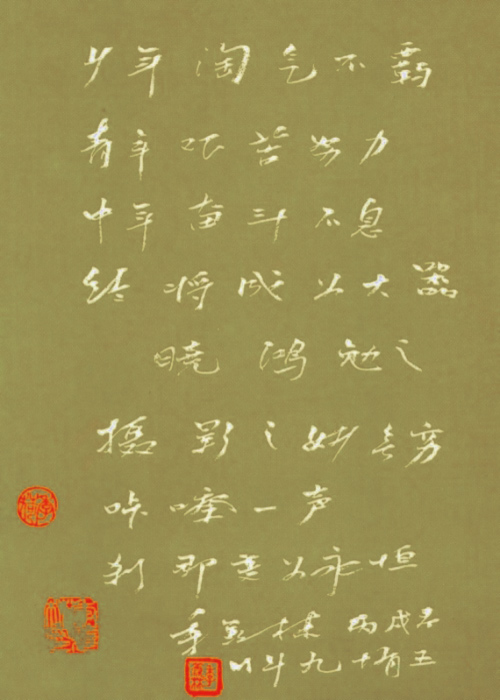 少年淘气不霸
青年艰苦努力
中年奋斗不息
终将成为大器
晓鸿勉之
摄影之妙无穷
咔嚓一声
刹即变为永恒
丙戌
时年九十有五